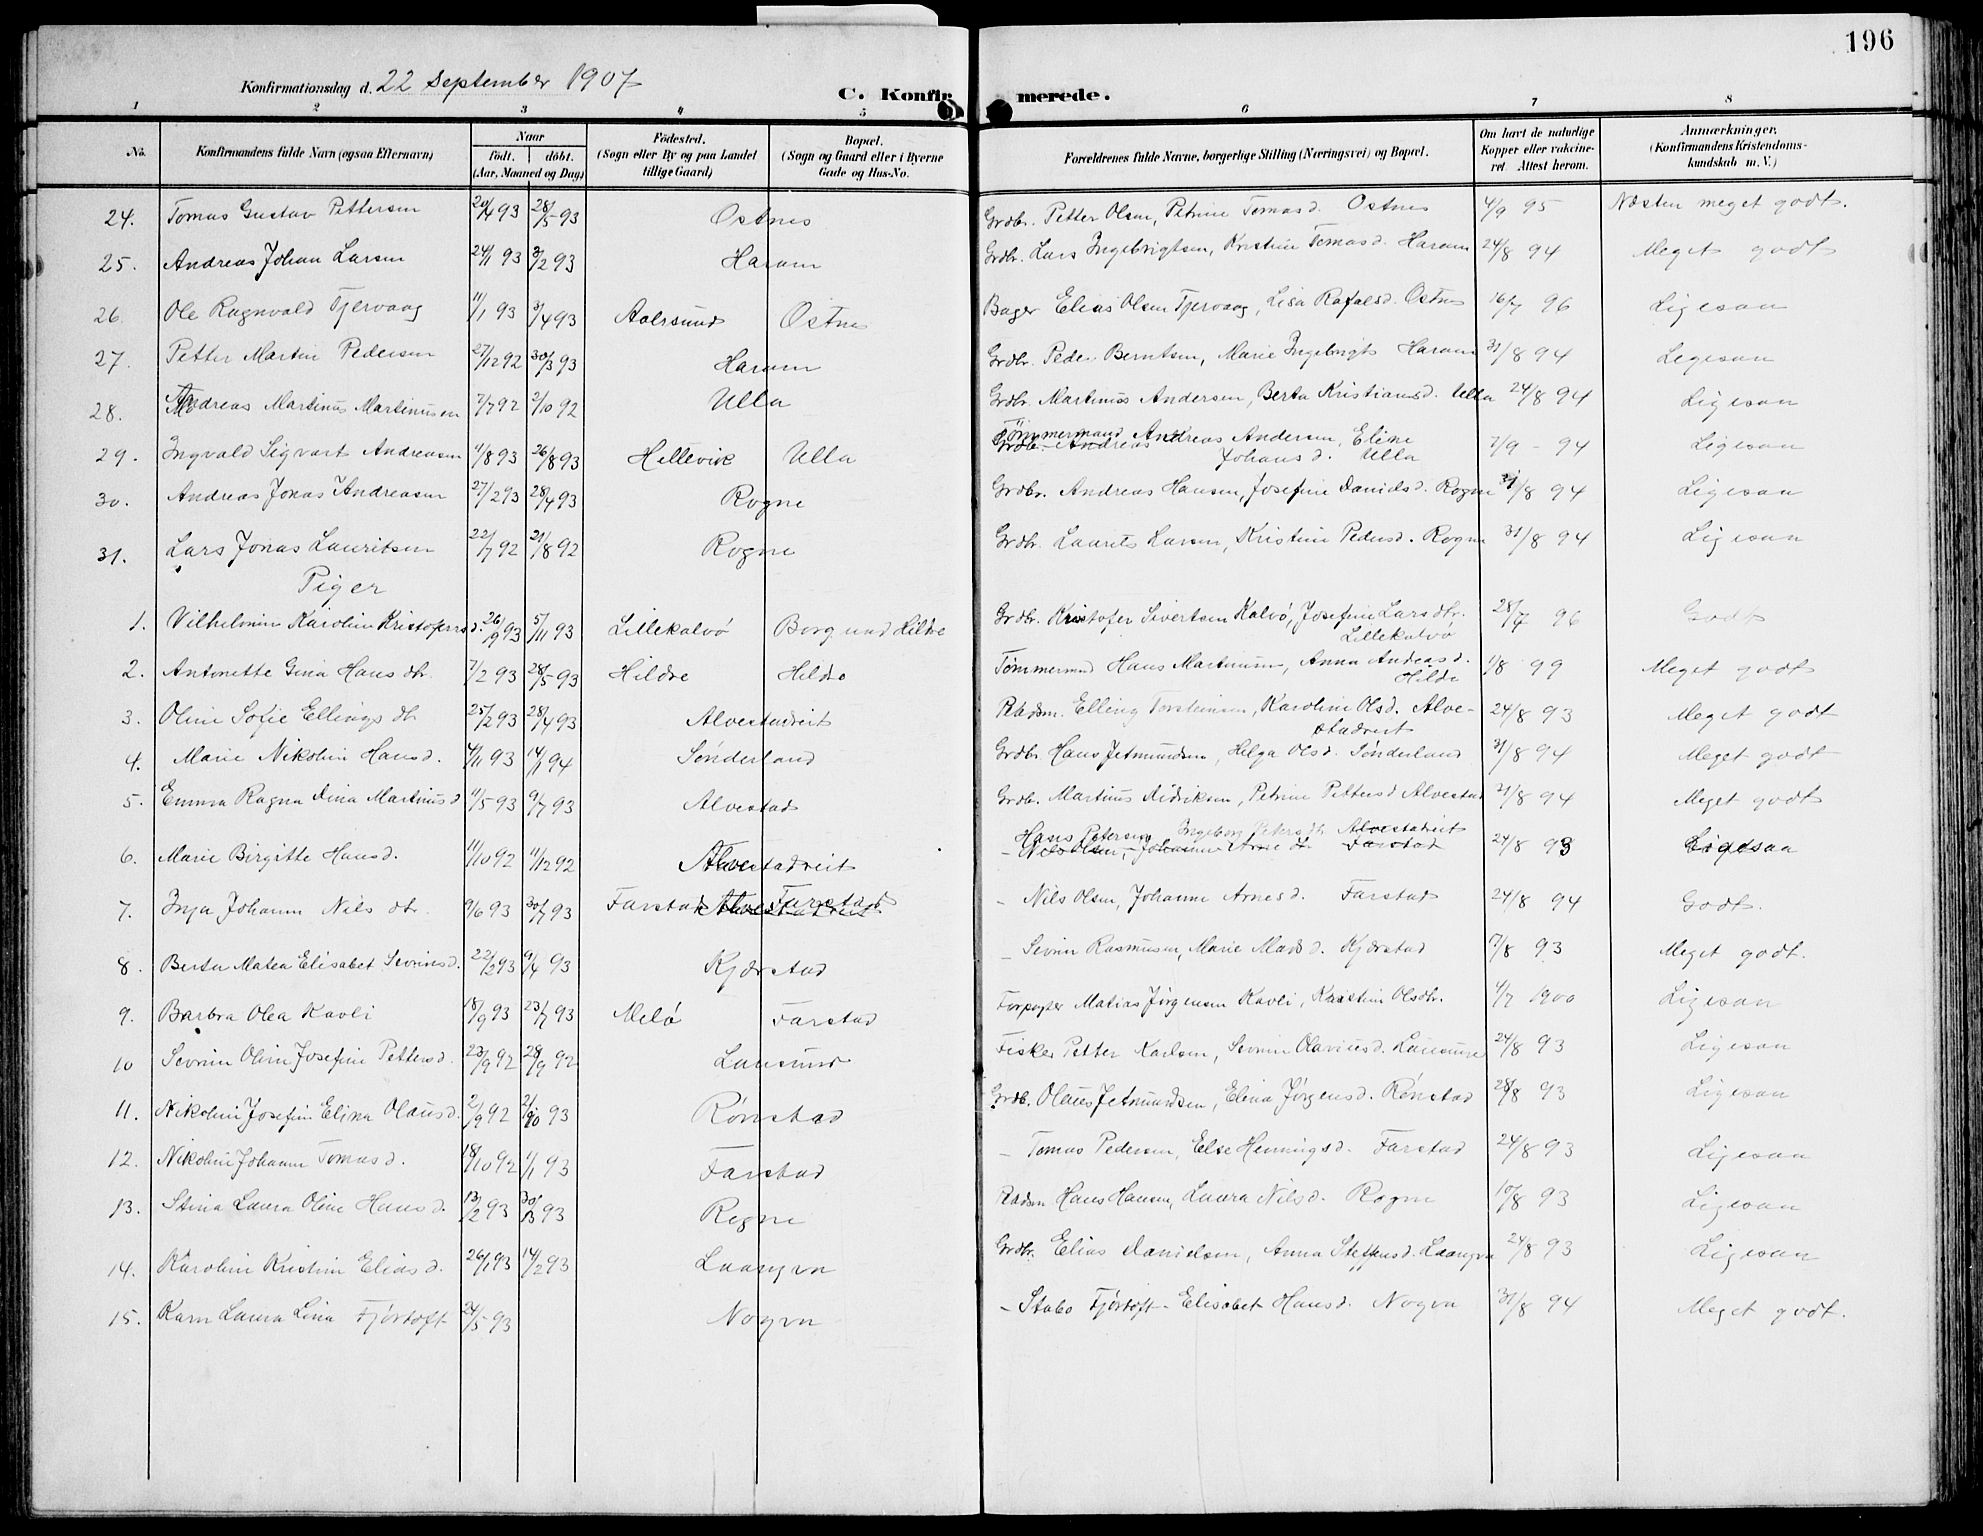 196
Konfirmationsdag d. 22 September 1907
C. Konfirmerede.
1 2 3 4 5 6 7 8
No. Konfirmandens fulde Navn (ogsaa Efternavn) Naar födt. döbt. (Aar, Maaned og Dag) Födested. (Sogn eller By og paa Landet tillige Gaard) Bopæl. (Sogn og Gaard eller i Byerne Gade og Hus-No. Forældrenes fulde Navne, borgerlige Stilling (Næringsvei) og Bopæl. Om havt de naturlige Kopper eller vakcineret Attest herom. Anmærkninger, (Konfirmandens Kristendomskundskab m. V.)
24. Tomas Gustav Pettersen 20/4 93 28/5 93 Ostnes Grdbr. Petter Olsen, Petrine Tomasd. Ostnes 4/9 95 Næsten meget godt.
25. Andreas Johan Larsen 24/1 93 3/2 93 Haram Grdbr. Lars Ingebrigtsen, Kristine Tomasd. Haram 24/8 94 Meget godt
26. Ole Ragnvald Tjervaag 11/1 93 3/4 93 Aalesund Ostnes Bager Elias Olsen Tjervaag, Lisa Rafaelsd. Ostnes 16/7 96 Ligesaa
27. Petter Martin Pedersen 27/12 92 30/3 93 Haram Grdbr. Peder Berntsen, Marie Ingebrigts Haram 31/8 94 Ligesaa
28. Andreas Martinus Martinussen 7/7 92 2/10 92 Ulla Grdbr. Martinus Andersen, Berta Kristiansd. Ulla 24/8 94 Ligesaa
29. Ingvald Sigvart Andreasen 11/8 93 26/8 93 Hellevik Ulla Tömmermand Andreas Andersen, Eline Johansd. Ulla 7/9 - 94 Ligesaa
30. Andreas Jonas Andreasen 27/2 93 28/4 93 Rogne Grdbr. Andreas Hansen, Josefine Danielsd. Rogne 31/8 94 Ligesaa
31. Lars Jonas Lauritsen 22/7 92 21/8 92 Rogne Grdbr. Laurits Larsen, Kristine Pedersd. Rogne 31/8 94 Ligesaa
Piger
1. Vilhelmine Karoline Kristofersd. 26/9 93 5/11 93 Lillekalvö Borgund Hildre Grdbr. Kristofer Sivertsen Kalvö, Josefine Larsdtr. Lillekalvö 28/7 96 Godt
2. Antonette Gina Hansdtr. 7/2 93 28/5 93 Hildre Hildre Tømmermnd Hans Martinussen, Anna Andreasd. Hildre 1/8 99 Meget godt
3. Oline Sofie Ellingsdtr 25/2 93 28/4 93 Alvestadreit Pladsm. Elling Torsteinsen, Karoline Olsd. Alvestadreit 24/8 93 Meget godt
4. Marie Nikoline Hansd. 4/11 93 14/1 94 Sønderland Grdbr Hans Jetmundsen, Helga Olsd. Sønderland 31/8 94 Meget godt
5. Emma Ragna Dina Martinusd 11/5 93 9/7 93 Alvestad Grdbr. Martinus Didriksen, Petrine Pettersd Alvestad 31/8 94 Meget godt
6. Marie Birgitte Hansd. 11/10 92 11/12 92 Alvestadreit - Hans Petersen Ingeborg Petersdtr Alvestadreit 24/8 93 Ligesaa
7. Inga Johanne Nilsdtr. 9/6 93 30/7 93 Farstad Farstad - Nils Olsen, Johanne Arnesd. Farstad 24/8 94 Godt.
8. Berta Matea Elisabet Sevrinsd. 22/2 93 9/4 93 Kjærstad - Sevrin Rasmussen, Marie Madsd. Kjærstad 7/8 93 Meget godt.
9. Barbra Olea Kavli 18/9 93 23/7 93 Melö Farstad Forpagter Matias Jörgensen Kavli, Kristine Olsdtr. 4/7 1900 Ligesaa
10 Sevrine Oline Josefine Pettersd. 23/9 92 29/9 92 Lausund Fisker Petter Karlsen, Sevrine Olaviusd. Lausund 24/8 93 Ligesaa
11. Nikoline Josefine Elina Olausd. 2/9 92 2/10 93 Rønstad Grdb. Olaus Jetmundsen, Elina Jørgensd. Rønstad 28/8 93 Ligesaa
12. Nikoline Johanne Tomasd. 18/10 92 1/1 93 Farstad - Tomas Pedersen, Else Henningsd. Farstad 24/8 93 Ligesaa
13. Stina Laura Oline Hansd. 13/2 93 30/3 93 Rogne Pladsm Hans Hansen, Laura Nilsd. Rogne 10/8 93 Ligesaa
14. Karoline Kristine Eliasd. 26/1 93 14/2 93 Laangva Grdbr. Elias Danielsen, Anna Steffensd. Laangva 24/8 93 Ligesaa
15. Karn Laura Lina Fjörtoft 24/5 93 Nogva - Stabo Fjörtoft - Elisabet Hansd. Nogva 31/8 94 Meget godt.